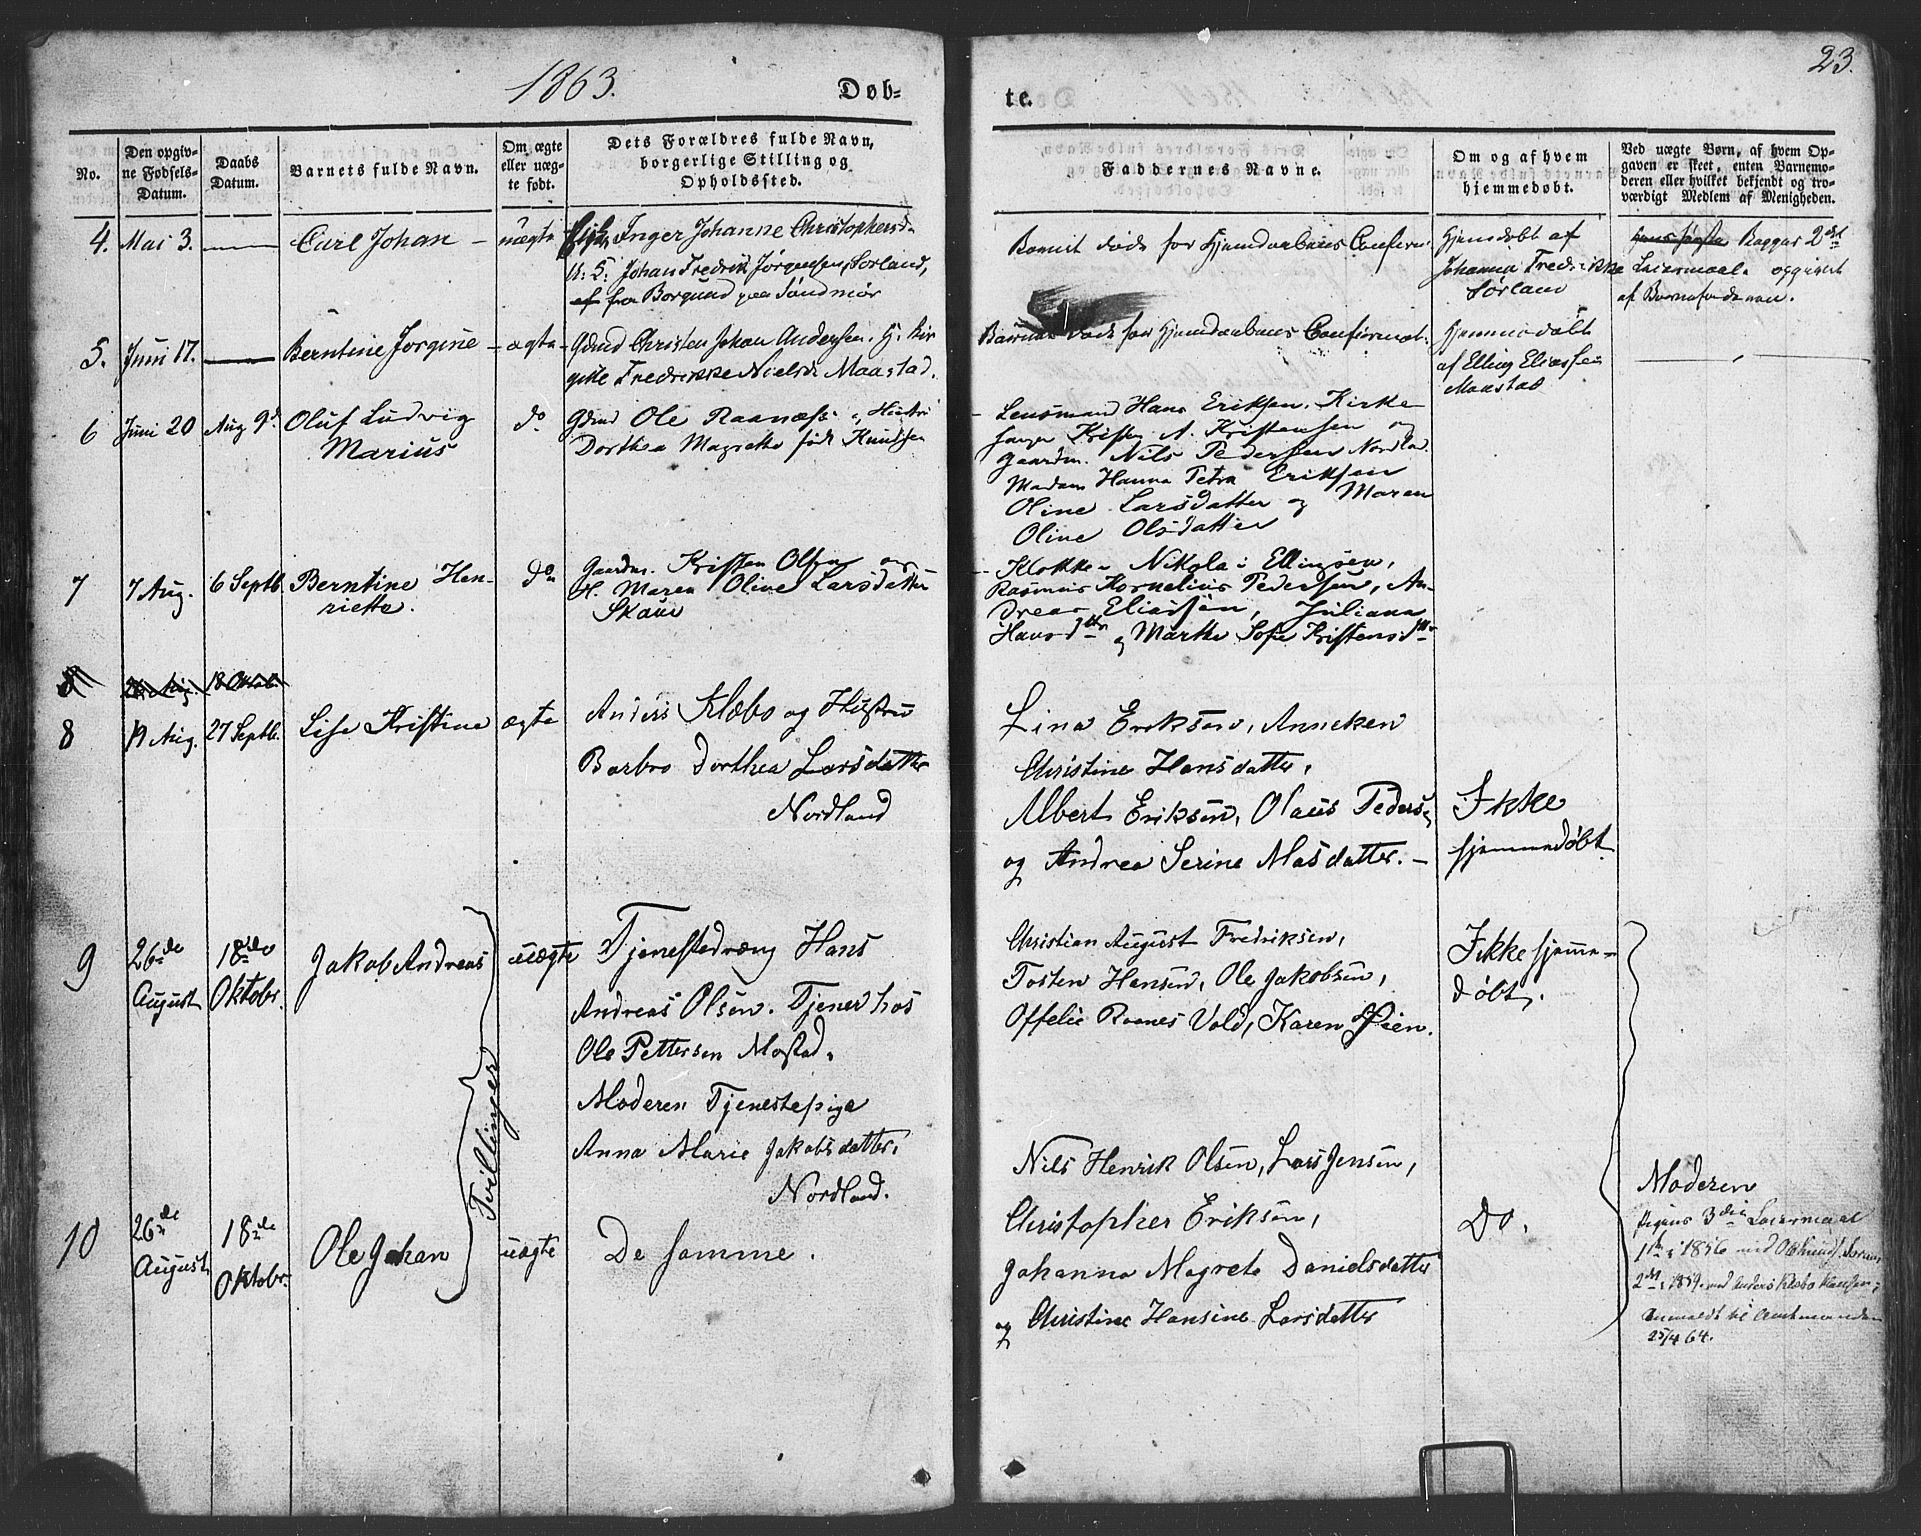 1863.
Døb-
te.
23.
No.
Den opgiv-
ne Fødsels-
Datum.
Daabs
Datum.
Barnets fulde Navn.
Om ægte
eller uæg-
te født.
Dets Forældres fulde Navn,
borgerlige Stilling og
Opholdssted.
Faddernes Navne.
Om og af hvem
hjemmedøbt.
Ved uægte Børn, af hvem Op-
gaven er skeet, enten Barnemo-
deren eller hvilket bekjendt og tro-
værdigt Medlem af Menigheden.
4. Mai 3. — Carl Johan — uægte
Inger Johanne Christophersd.
U. F. Johan Fredrik Jørgensen, Sørland,
af fra Borgund paa Søndmør
Barnet døde for Hjemdaabens Confirm.
Hjemdøbt af
Johanna Fredrikke
Sørland
Baggar 2det
Leiermaal. opgivet
af Barnefaderen.
5. Juni 17. — Berntine Jorgine — ægte
Gdmd Christen Johan Andersen. H. Bir
gitte Fredrikke Nielsd. Maastad.
Barnet døde før Hjemdaabens Confirmat.
Hjemmedøbt
af Elling Eliassen
Maastad
6 Juni 20 Aug 9d. Oluf Ludvig
Marius
do
Gdmd Ole Raanæss. Hustru
Dorthea Magrethe født Knudsen
Lensmand Hans Eriksen. Kirke
sanger Kristen A. Kristensen og
gaardm. Nils Pedersen Nordla.
Madam Hanna Petra Eriksen
Oline Larsdatter og Maren
Oline Olsdatter
7 7 Aug. 6 Septb. Berntine Hen-
riette.
do
Gaardm. Kristen Olsen og
H. Maren Oline Larsdatter
Skaue
Klokker Nikolai Ellingsen,
Rasmus Kornelius Pedersen, An-
dreas Eliassen, Juliana
Hansdtr og Marthe Sofie Kristensdtr
8 26 Aug. 18 Oktob.
8 19 Aug. 27 Septb. Lise Kristine ægte
Anders Klæbo og Hustru
Barbro Dorthea Larsdatter
Nordland
Lina Eriksen, Anneken
Christine Hansdatter,
Albert Eriksen, Olaus Peders.
og Andrea Serine Masdatter. —
Ikke
hjemmedøbt.
9 26de
August
18de
Oktobr.
Jakob Andreas
uægte
Tjenestedræng Hans
Andreas Olsen. Tjener hos
Ole Pettersen Mostad.
Moderen Tjenestepige
Anna Marie Jakobsdatter,
Nordland.
Christian August Fredriksen,
Tosten Hansen, Ole Jakobsen,
Offelie Roanes Vold, Karen Øien.
Ikke hjemme-
døbt.
Tvillinger
10 26de
August
18de
Oktobr.
Ole Johan
uægte
De samme.
Nils Henrik Olsen, Lars Jensen,
Christopher Eriksen,
Johanna Magrete Danielsdatter
og Christine Hansine Larsdatter
Do.
Moderen
Pigens 3die Leiermaal
1ste i 1856 med
2det i 1859 med Anders Klæbo
Anmeldt til Amtmanden
25/4 64.